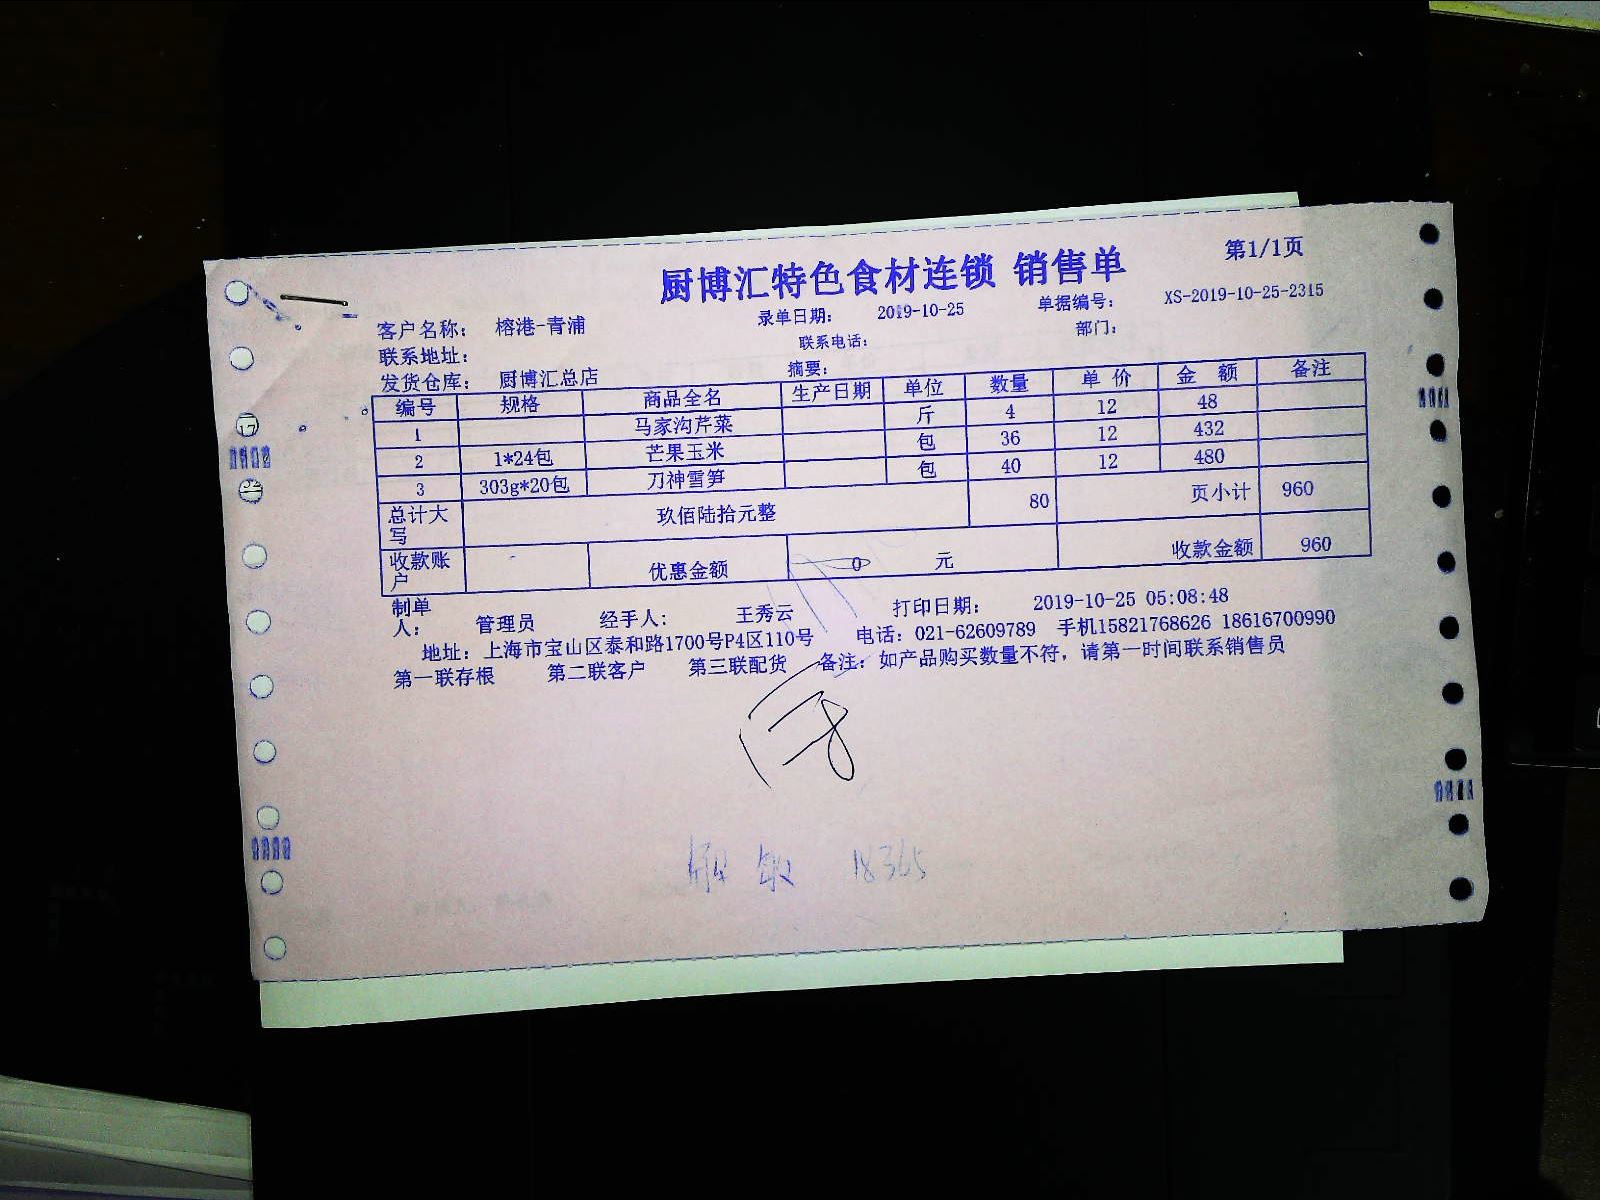 厨博汇特色食材连锁 销售单 第1/1页
客户名称： 榕港-青浦 录单日期： 2019-10-25 单据编号： XS-2019-10-25-2315
联系地址： 联系电话： 部门：
发货仓库： 厨博汇总店 摘要：
编号 规格 商品全名 生产日期 单位 数量 单 价 金 额 备注
1 马家沟芹菜 斤 4 12 48
2 1*24包 芒果玉米 包 36 12 432
3 303g*20包 刀神雪笋 包 40 12 480
总计大写 玖佰陆拾元整 80 页小计 960
收款账户 优惠金额 0 元 收款金额 960
制单人： 管理员 经手人： 王秀云 打印日期： 2019-10-25 05:08:48
地址：上海市宝山区泰和路1700号P4区110号 电话：021-62609789 手机15821768626 18616700990
第一联存根 第二联客户 第三联配货 备注：如产品购买数量不符，请第一时间联系销售员
18365